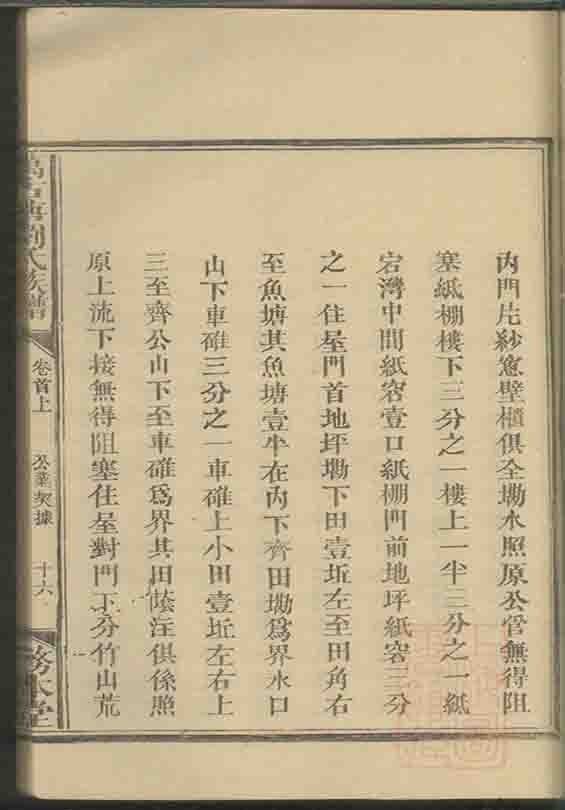 內門片紗窓壁櫃俱全墈水照原公管無得阻
塞紙棚樓下三分之一樓上一半三分之一紙
宕灣中間紙窖壹口紙棚門前地坪紙窖三分
之一住屋門首地坪墈下田壹坵左至田角右
至魚塘其魚塘壹半在內下齊田墈爲界水口
山下車碓三分之一車碓上小田壹坵左右上
三至齊公山下至車碓爲界其田蔭注俱係照
原上流下接無得阻塞住屋對門下分竹山荒
劉氏族譜
卷首上
公業契據
十六
務本堂